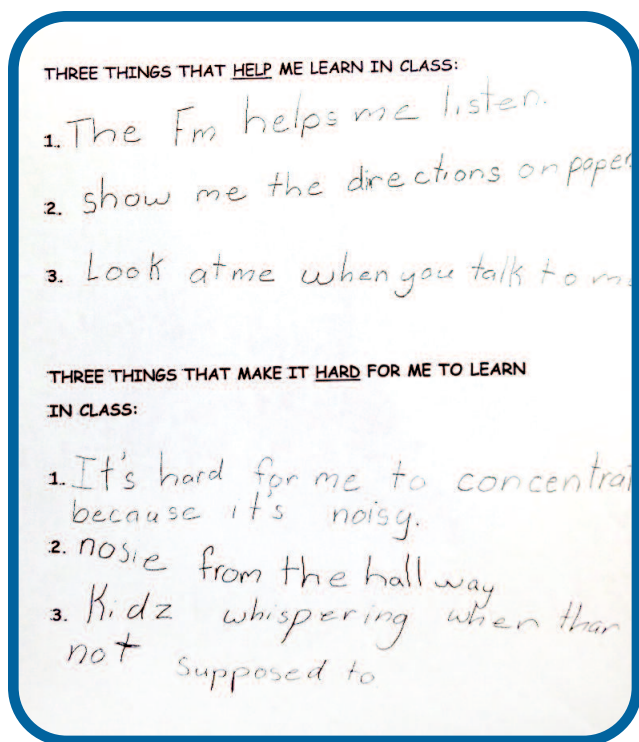 THREE THINGS THAT HELP ME LEARN IN CLASS:
1. The Fm helps me listen.
2. show me the directions on paper
3. Look at me when you talk to
THREE THINGS THAT MAKE IT HARD FOR ME TO LEARN
IN CLASS:
1. It's hard for me to concentrat
because it's noisy.
2. nosie from the hall way
3. Kidz whispering when
not supposed to